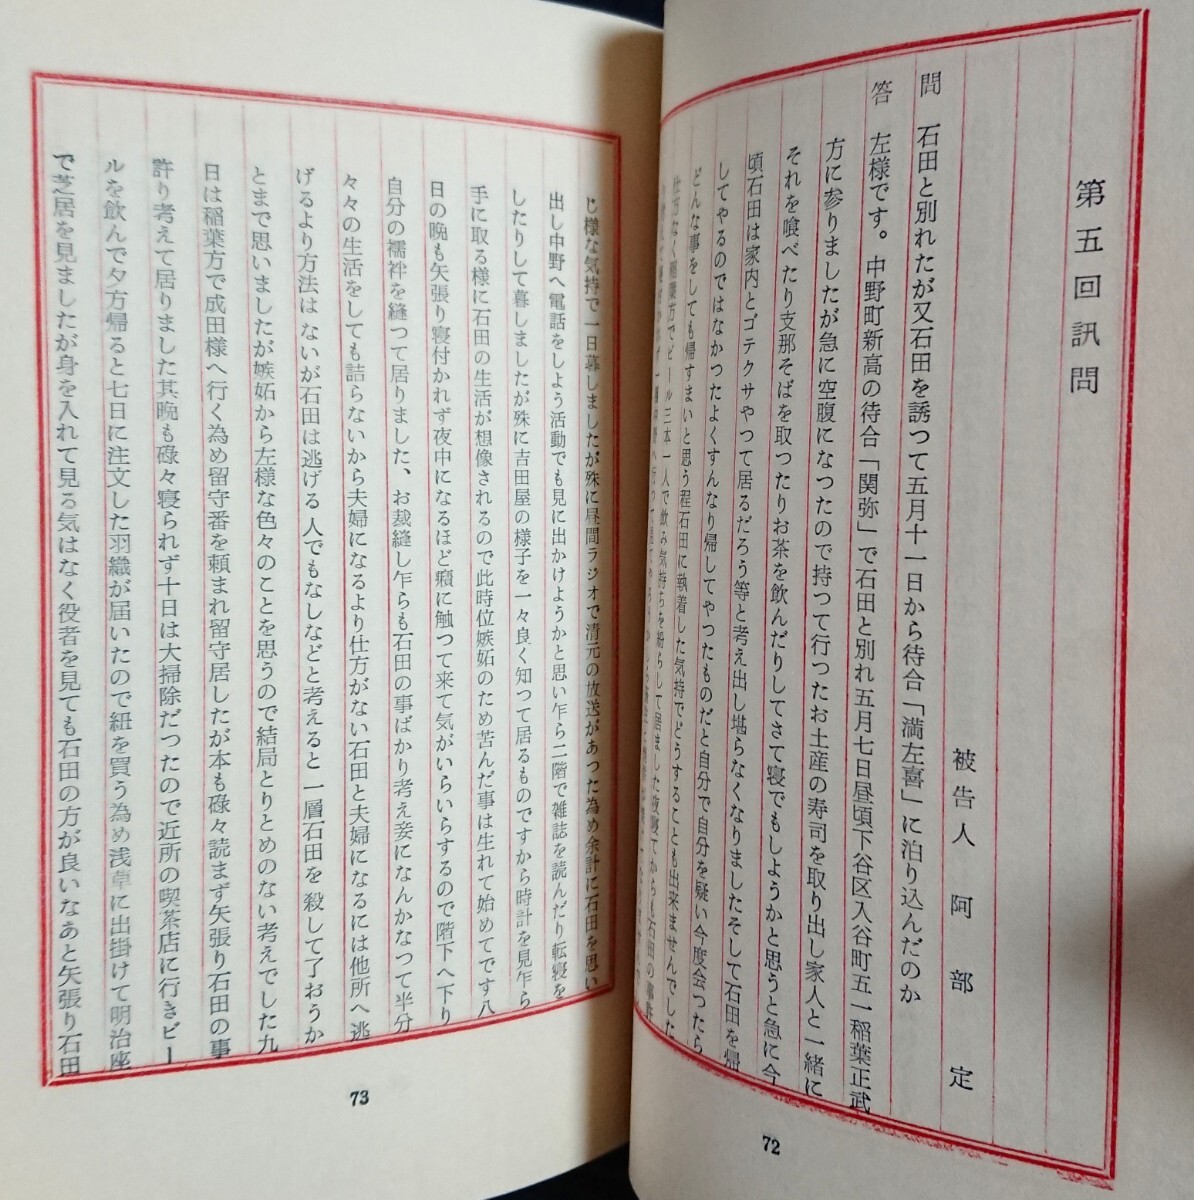 第五回訊問
被告人　阿部　定
問　石田と別れたが又石田を誘つて五月十一日から待合「満左喜」に泊り込んだのか
答　左様です。中野町新高の待合「関弥」で石田と別れ五月七日昼頃下谷区入谷町五一稲葉正武
方に参りましたが急に空腹になつたので持つて行つたお土産の寿司を取り出し家人と一緒に
それを喰べたり支那そばを取つたりお茶を飲んだりしてさて寝でもしようかと思うと急に今
頃石田は家内とゴテクサやつて居るだろう等と考え出し堪らなくなりましたそして石田を帰
してやるのではなかつたよくすんなり帰してやつたものだと自分で自分を疑い今度会つたら
どんな事をしても帰すまいと思う程石田に執着した気持でどうすることも出来ませんでした
仕方なく稲葉方でビール三本一人で飲み気持ちを紛らして居ました夜寝てからも石田の事許
じ様な気持で一日暮しましたが殊に昼間ラジオで清元の放送があつた為め余計に石田を思い
出し中野へ電話をしよう活動でも見に出かけようかと思い乍ら二階で雑誌を読んだり転寝を
したりして暮しましたが殊に吉田屋の様子を一々良く知つて居るものですから時計を見乍ら
手に取る様に石田の生活が想像されるので此時位嫉妬のため苦んだ事は生れて始めてです八
日の晩も矢張り寝付かれず夜中になるほど癪に触つて来て気がいらいらするので階下へ下り
自分の襦袢を縫つて居りました、お裁縫し乍らも石田の事ばかり考え妾になんかなつて半分
々々の生活をしても詰らないから夫婦になるより仕方がない石田と夫婦になるには他所へ逃
げるより方法はないが石田は逃げる人でもなしなどと考えると一層石田を殺して了おうか
とまで思いましたが嫉妬から左様な色々のことを思うので結局とりとめのない考えでした九
日は稲葉方で成田様へ行く為め留守番を頼まれ留守居したが本も碌々読まず矢張り石田の事
許り考えて居りました其晩も碌々寝られず十日は大掃除だつたので近所の喫茶店に行きビー
ルを飲んで夕方帰ると七日に注文した羽織が届いたので紐を買う為め浅草に出掛けて明治座
で芝居を見ましたが身を入れて見る気はなく役者を見ても石田の方が良いなあと矢張り石田
72
73